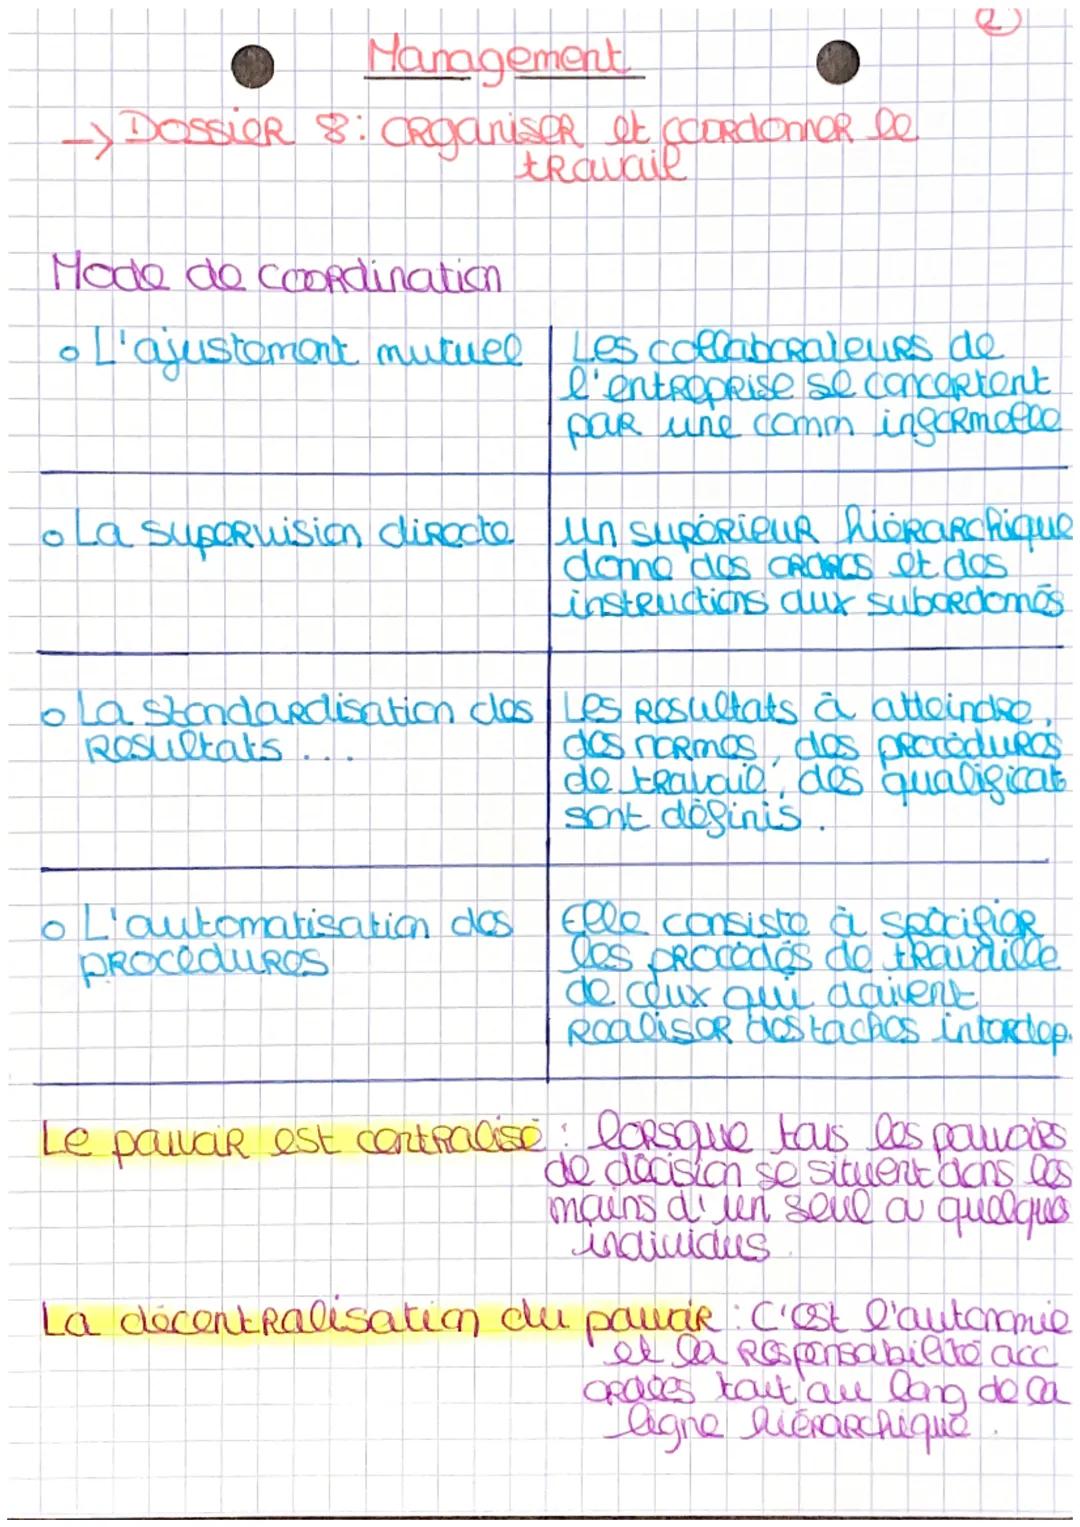 2
Management
-> Dossier 8: Organiser et coordonner le
travail
Mode de coordination
o L'ajustement mutuel
Les collaborateurs de
l'entreprise se concertent
par une comm informelle
o La supervision directe
Un supérieur hiérarchique
donne des ordres et des
instructions aux subordonnés
o La standardisation des
Resultats ...
Les Resultats à atteindre,
des normes, des procédures
de travail, des qualificat
sont définis.
o L'automatisation des
procédures
Elle consiste à spécifier
les procédés de travaille
de ceux qui doivent
Realiser des taches interdep.
Le pouvoir est centralisé : lorsque tous les pouvoirs
de décision se situent dans les
mains d'un seul ou quelques
individus.
La décentralisation du pouvoir : C'est l'autonomie
et la Responsabilité acc
ordées tout au long de la
ligne hiérarchique.